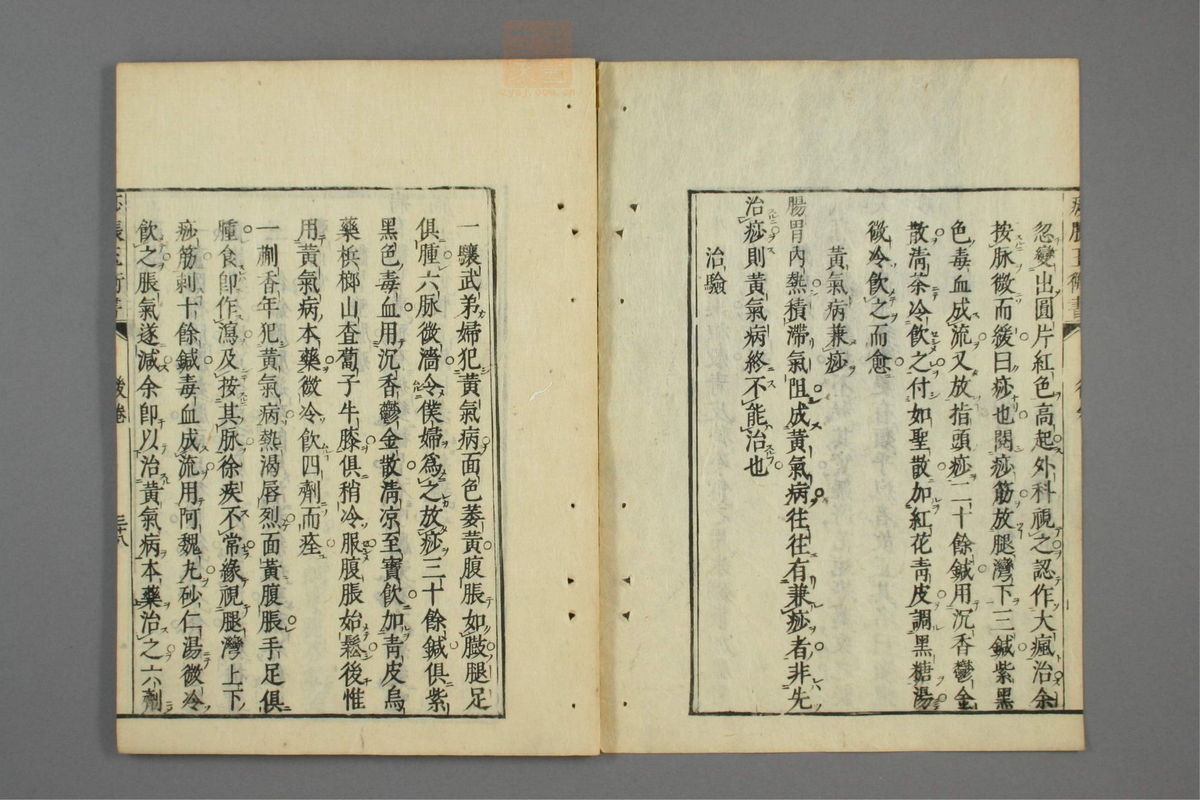 忽變出圓片紅色高起外科視之認作大瘋治余
按脉微而緩曰痧也閱痧筋放腿灣下三鍼紫黑
色毒血成流又放指頭痧二十餘鍼用沉香鬱金
散清茶冷飲之付如聖散加紅花青皮調黑糖湯
微冷飲之而愈
黃氣病兼痧
腸胃內熱積滯氣阻成黃氣病往往有兼痧者非先
治痧則黃氣病終不能治也
治驗
一驤武弟婦犯黃氣病面色萎黃腹脹如臌腿足
俱腫六脉微濇令僕婦爲之放痧三十餘鍼俱紫
黑色毒血用沉香鬱金散清凉至寶飲加青皮烏
藥梹榔山査蔔子牛膝俱稍冷服腹脹始鬆後惟
用黃氣病本藥微冷飲四劑而痊
一蒯香年犯黃氣病熱渴唇烈面黃腹脹手足俱
腫食卽作瀉及按其脉徐疾不常緣視腿灣上下
痧筋刺十餘鍼毒血成流用阿魏丸砂仁湯微冷
飲之脹氣遂減余卽以治黃氣病本藥治之六劑
後卷
三十八